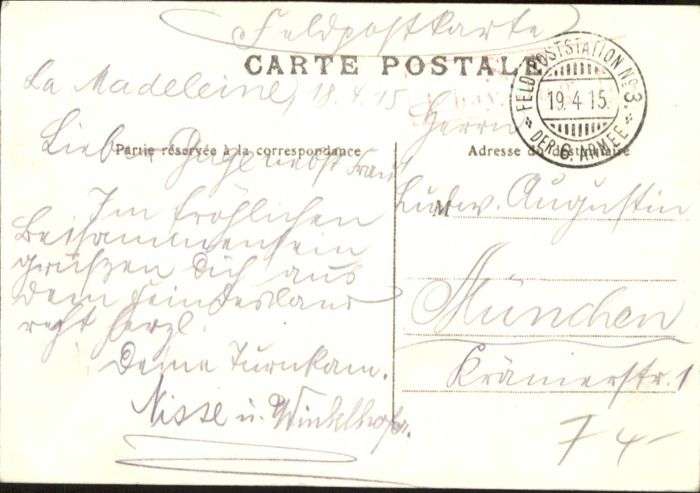 Feldpostkarte
CARTE POSTALE
FELDPOSTSTATION No 3.
19.4.15.
DER 6. ARMEE
La Madeleine, 18.4.15
Partie réservée à la correspondance
Lieber nebst Frau!
Im fröhlichen
Beisammensein
grüßen Dich aus
dem Feindesland
recht herzl.
Deine Turnkam.
Nisse u. Winkelhofer.
Adresse du destinataire
Herrn
M
Ludw. Augustin
München
Krämerstr. 1
7 4-